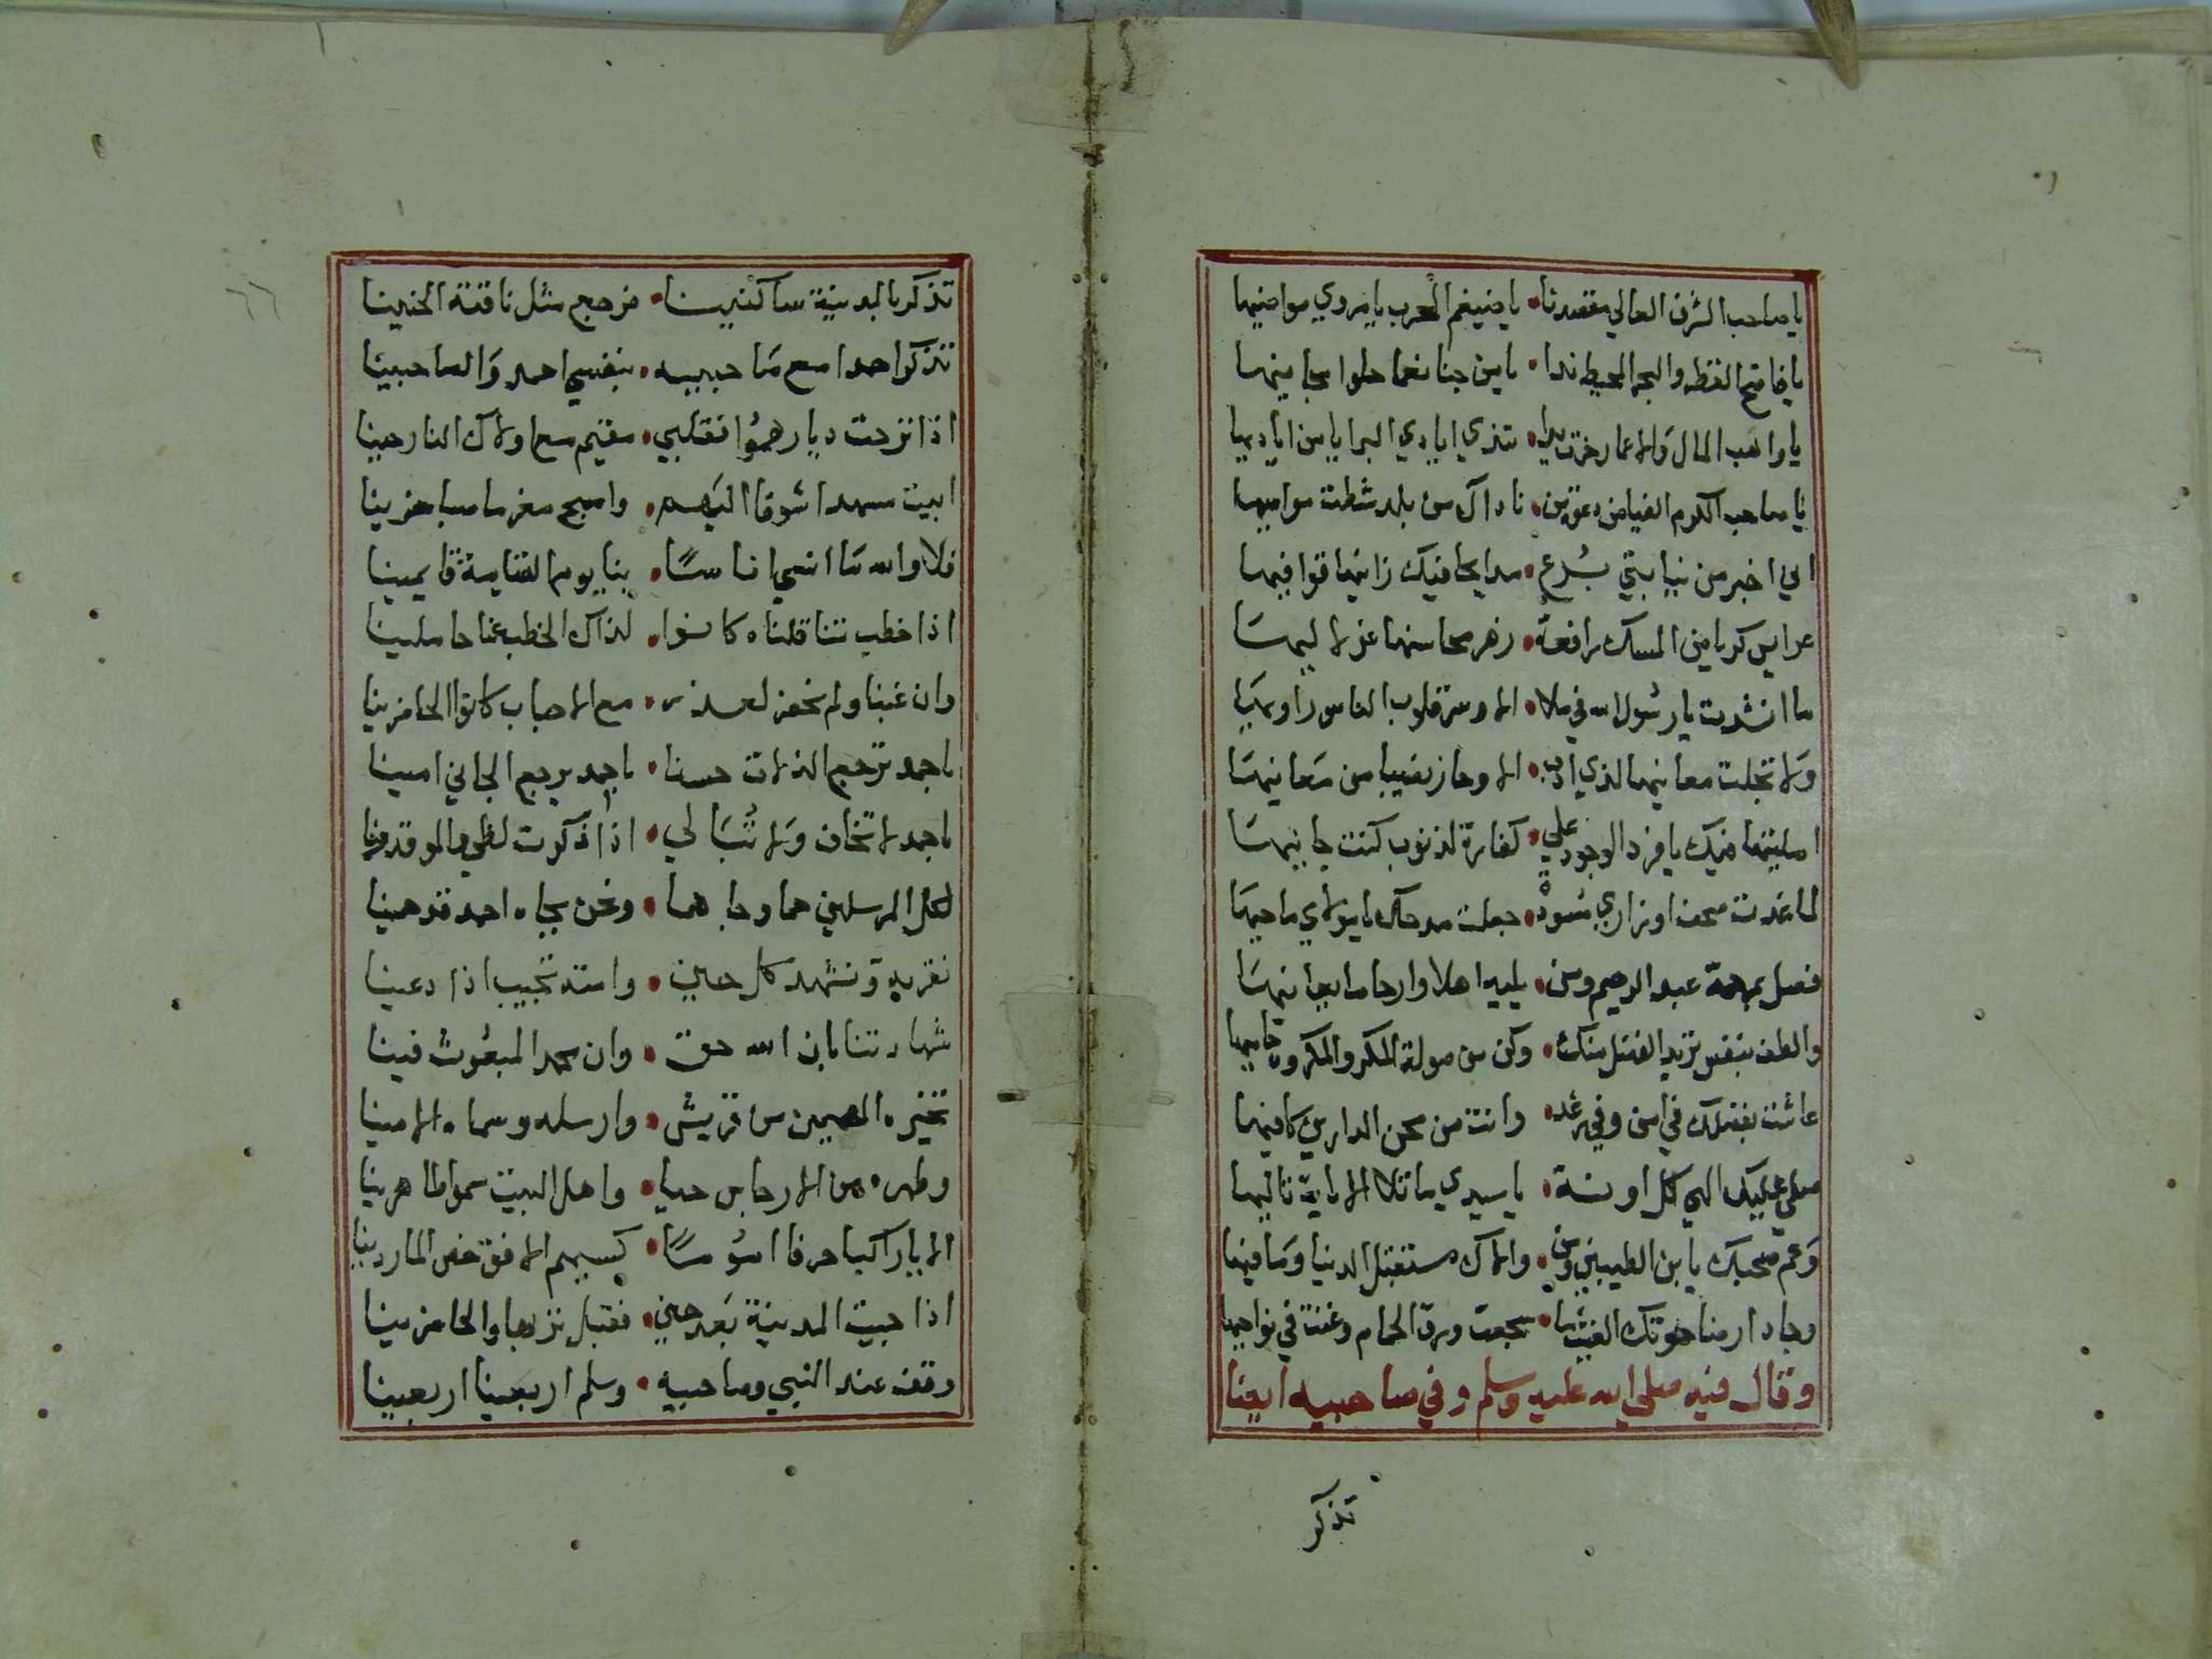 يا صاحب الشرف العالي مقصدنا • يا ضيغم الحرب يا مروي مواضيها
يا فاتح القطر والبحر المحيط ندا • يا من جنا نعما حلوا مجانيها
يا واهب المال والاعمار خرت يدا • تندي ايادي البرايا من اياديها
يا صاحب الكرم الفياض دعوة من • ناداك من بلد شطت مواميها
اني اخبر من نيابتي برع • مدايحا فيك زانتها قوافيها
عرايس كربا من المسك رافعة • زهر محاسنها عز لاليها
ما انشدت يا رسول الله في ملا • الا وسر قلوب الناس راويها
ولا تجلت معانيها لذي ادب • الا وحاز نصيبا من معانيها
امليتها فيك يا فرد الوجود علي • كفارة لذنوب كنت جانيها
لما غدت صحف اوزاري مسودة • جعلت مدحك يا مولاي ماحيها
فصل بمرحمة عبد الرحيم ومن • يليه اهلا وارحاما يعانيها
والطف بنفس تريد الفضل منك • وكن من صولة المكر والمكروه حاميها
عاشت بفضلك في امن وفي رغد • وانت من محن الدارين كافيها
صلى عليك الهي كل اونة • يا سيدي ما تلا الاية تاليها
وعم صحبك يا بن الطيبين ومن • والاك مستقبل الدنيا وما فيها
وجاد ارضا حوتك الغيث ما • سجعت ورق الحمام وغنت في نواحيها
وقال فيه صلى الله عليه وسلم وفي صاحبيه ايضا
تذكر
تذكر بالمدينة ساكنينا • فرجع مثل ناقته الحنينا
تذكر احدا مع صاحبيه • بنفسي احمد والصاحبينا
اذا نزحت ديارهموا فقلبي • مقيم مع اولاك النازحينا
ابيت مسهدا شوقا اليهم • واصبح مغرما صبا حزينا
فلا والله ما انسي اناسا • بنا يوم القيامة قايمينا
اذا خطب تثاقلناه كانوا • لذاك الخطب عنا حاملينا
وان غبنا ولم نحضر لعذر • مع الاحباب كانوا الحاضرينا
باحمد ترجع الزلات حسنا • باحمد يرجع الجاني امينا
باحمد لا تخاف ولا تبالي • اذا ذكرت لظي والموقدونا
لكل المرسلين حما وجاها • ونحن بجاه احمد قد حمينا
نقر به ونشهد كل حين • وامته تجيب اذا دعينا
شهادتنا بان الله حق • وان محمد المبعوث فينا
تخيره المهيمن من قريش • وارسله وسماه الامينا
وطهره من الارجاس حيا • واهل البيت سموا طاهرينا
الا يا راكبا حرفا اموسا • كسهم الافق خض الماردينا
اذا جيت المدينة بعد حين • فقبل تربها والحاضرينا
وقف عند النبي وصاحبيه • وسلم اربعينا اربعينا
٦٦